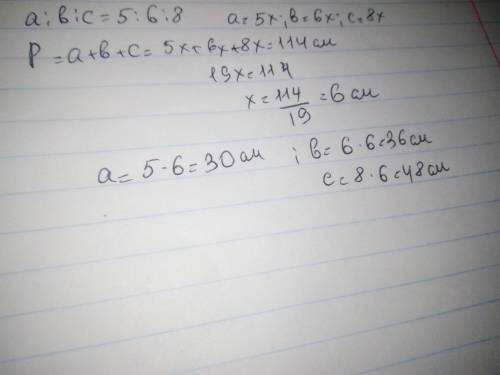 a:b:c=5:6:8 a=5x; b=6x; c=8x
P=a+b+c=5x+6x+8x=114см
19x=114
x=114/19=6см
a=5·6=30см ; b=6·6=36см
c=8·6=48см